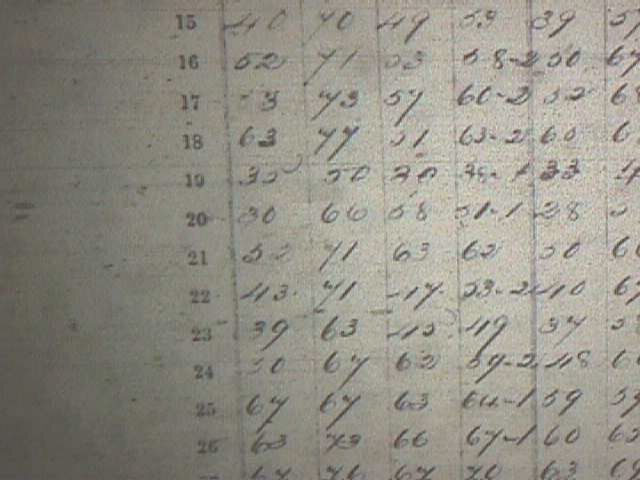 15 40 70 49 53 39
16 52 71 53 58-2 50
17 53 73 57 60-2 52
18 63 77 51 63-2 60
19 35 50 30 38-1 33
20 30 66 58 51-1 28
21 52 71 63 62 50
22 43 71 47 53-2 40
23 39 63 45 49 37
24 50 67 62 59-2 48
25 67 67 63 64-1 59
26 63 73 66 67-1 60
67 76 67 70 63